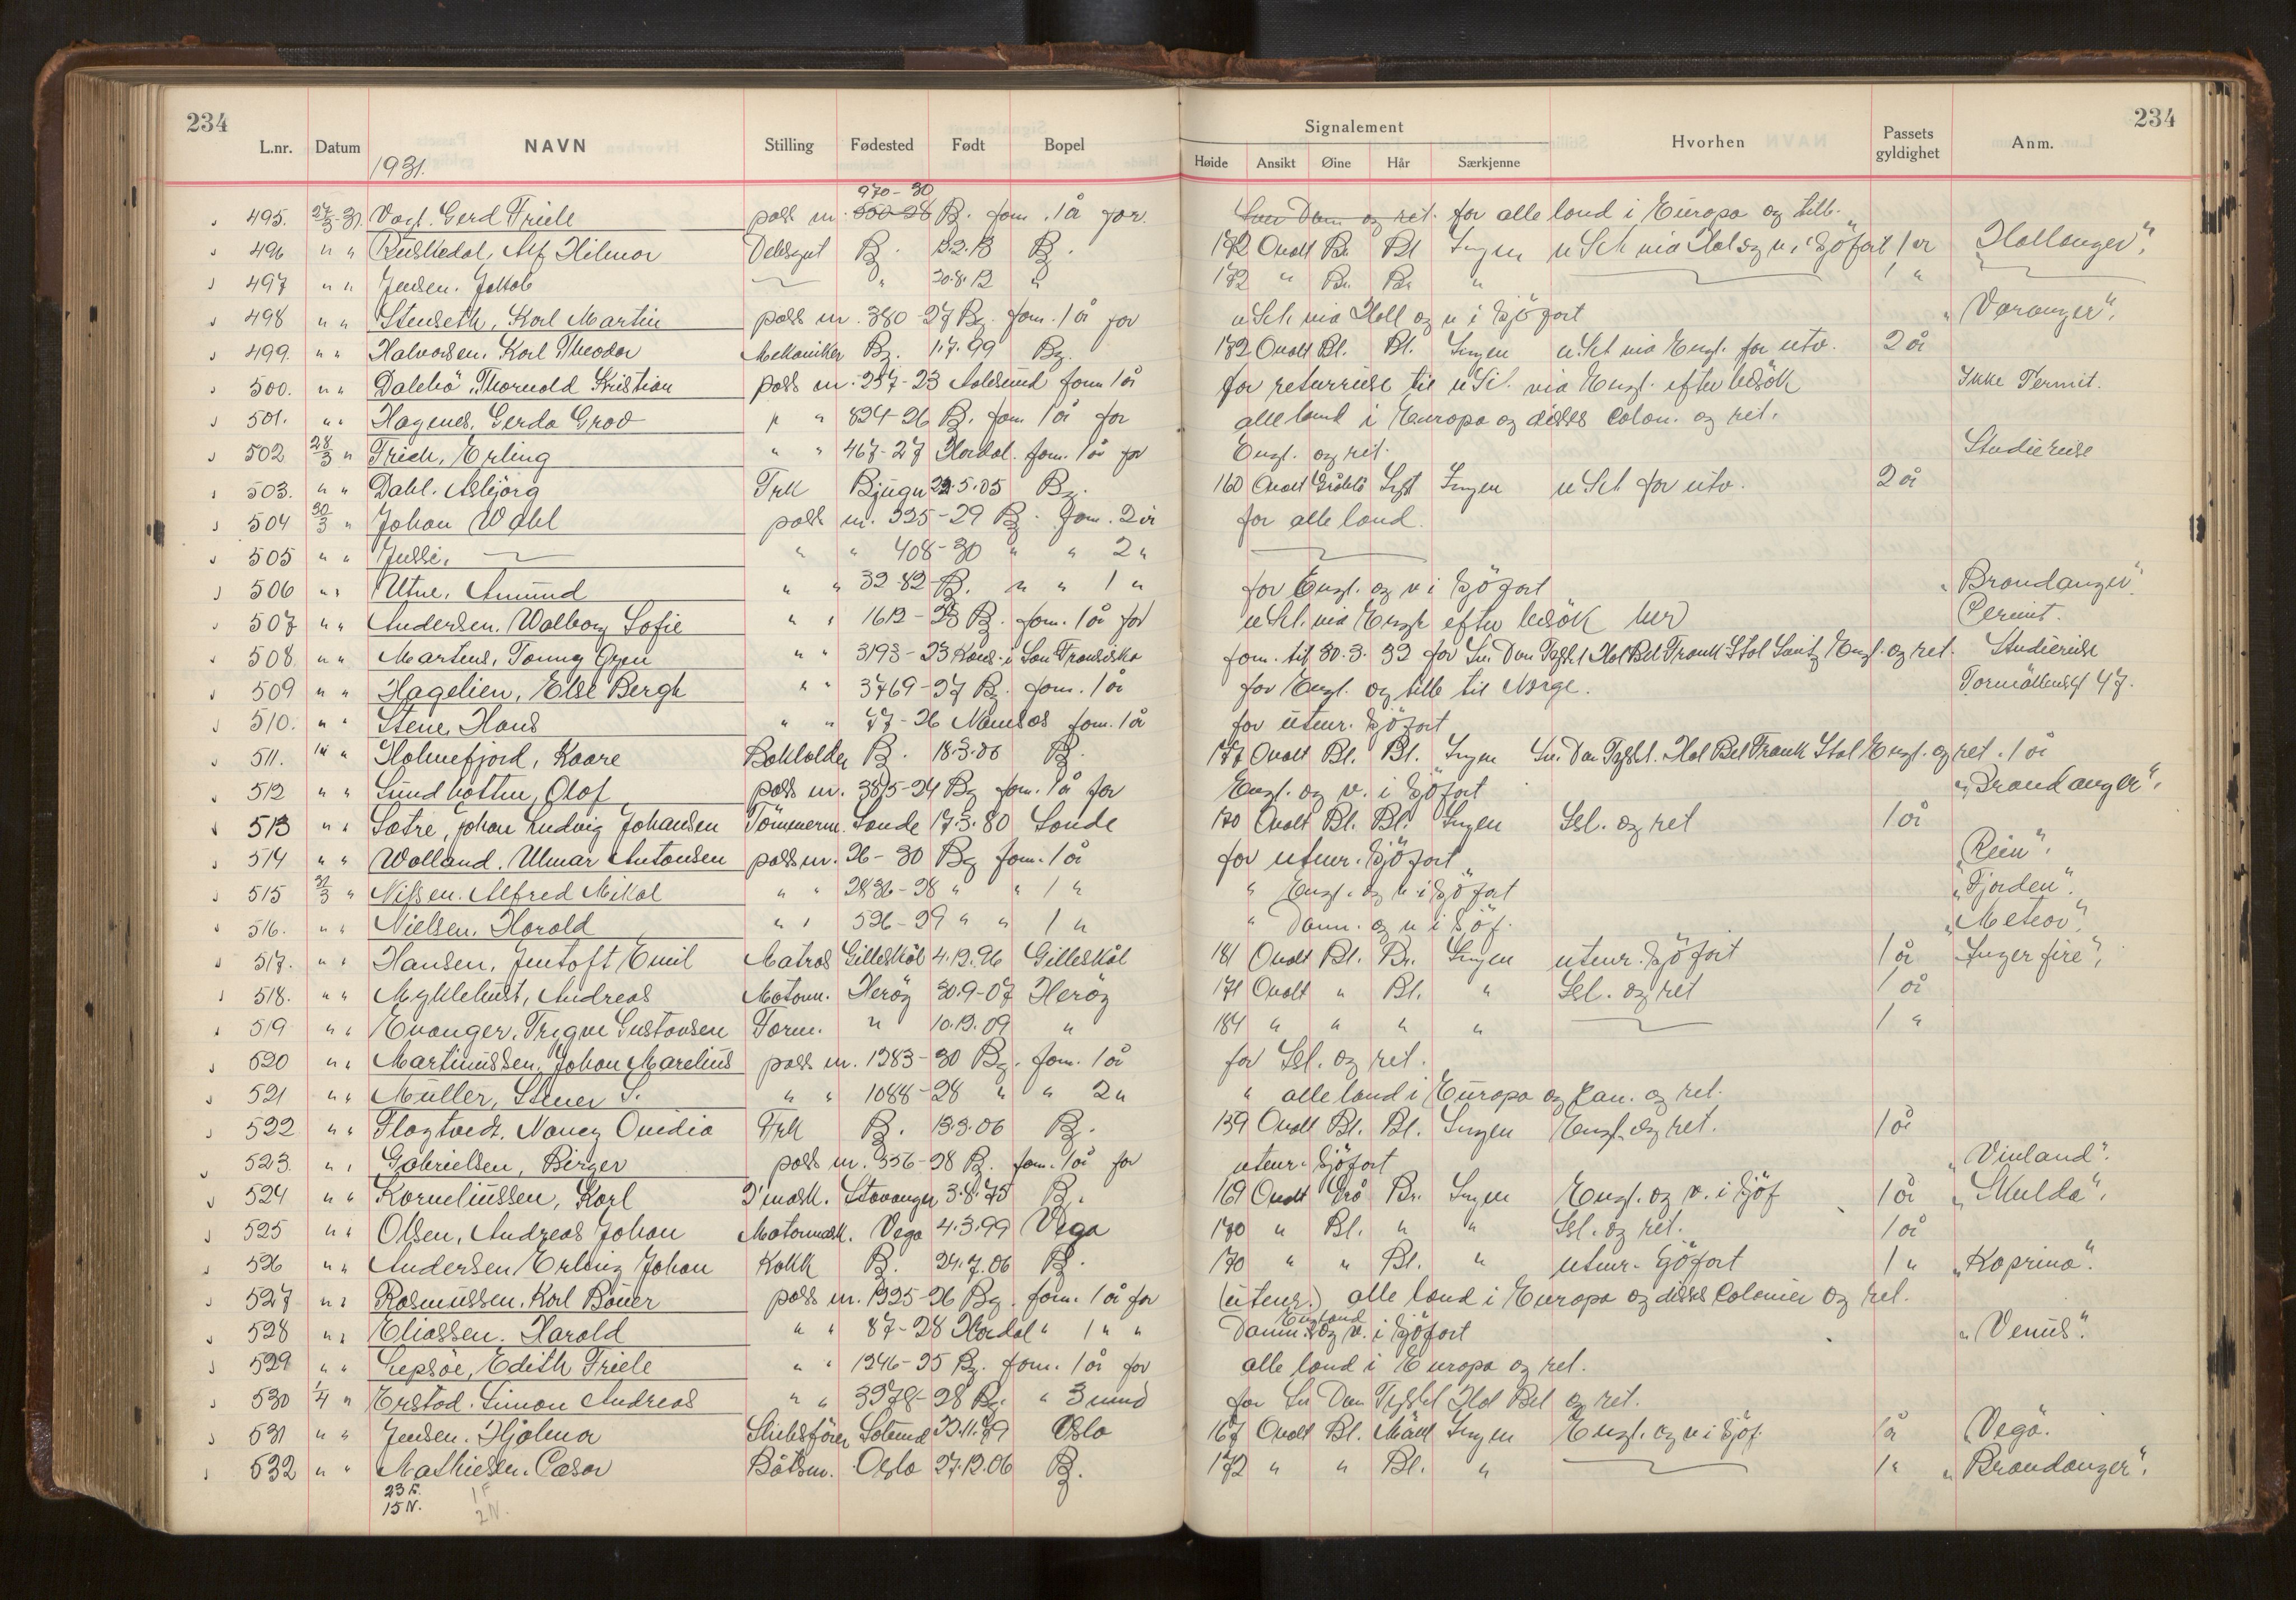 234 234
Signalement
L.nr. Datum NAVN Stilling Fødested Født Bopel Høide Ansikt Øine Hår Særkjenne Hvorhen Passets gyldighet Anm.
1931.
970-30
495. 27/3-31. Gerd Friele pass nr. 550-28 B. forn. 1 år for. for alle land i Europa og tilb.
496 " " Alf Hilmar B. B. 172 Ovalt Br. Bl Ingen u Sch via Hol og v. i Sjöfart 1 år "Hallanger".
497 " " Jensen. Jakob " 20.8.12 " 172 " Br. Br " 1 "
498 " " Stenseth, Karl Martin pass nr. 380-27 Bg. forn. 1 år for u Sch via Holl og v i Sjöfart "Varanger".
499. " " Halvorsen. Karl Theodor Mekaniker Bg. 1.7.99 Bg. 172 Ovalt Bl. Bl. Ingen u Sch via Engl. for utv. 2 år
500. " " Dalebö, Thorvald Kristian pass nr. 257-23 Aalesund forn 1 år for returreise til u St. via Engl. efter besök Ikke Permit.
501. " " Hagenes, Gerda Grad " " 824-26 B. forn 1 år for alle land i Europa og disses Colon. og ret.
502 28/3 " Erling " " 467-27 Hordal. forn. 1 år for Engl. og ret. Studiereise
503. " " Dahl. Asbjörg Frk Bjugn 22.5.05 Bg. 160 Ovalt Gråblå Lyst Ingen u Sch for utv. 2 år
504 30/3 " Johan Wahl pass nr. 325-29 B. forn. 2 år for alle land.
505 " " Jussi. " " 408-30 " " 2 "
506 " " Utne, Amund " " 32-82 B. " " 1 " for Engl. og v i Sjöfart "Brandanger".
507 " " Andersen. Walborg Sofie " " 1612-28 B. forn. 1 år for u Sch. via Engl efter besök her Permit.
508. " " Martens, Tonny Gran " " 3193-23 Kons. i San Fransisko forn. til 30.3.32 for Sv. Dan Tyskl Hol Bel Frank Ital Sveitz Engl. og ret. Studiereise
509 " " Hagelien, Else Bergh " " 3769-27 Bg. forn. 1 år for Engl. og tilb til Norge. 47.
510. " " Stene, Hans " " 77-26 Namsos forn. 1 år for utenr. Sjöfart
511. " " Holmefjord, Kaare Bokholder B. 18.3.06 B. 177 Ovalt Bl. Bl. Ingen Sv. Dan Tyskl. Hol Bel Frank Ital Engl. og ret. 1 år
512 " " Sundhotten, Olaf pass nr. 3815-24 Bg forn. 1 år for Engl. og v. i Sjöfart "Brandanger".
513 " " Sætre, Johan Ludvig Johansen Tömmerm. Sande 17.3.80 Sande 170 Ovalt Bl. Bl. Ingen Isl. og ret 1 år
514 " " Wolland. Ulmar Antonsen pass nr. 26-30 Bg forn. 1 år for utenr. Sjöfart "Rein".
515 31/3 " Nilsen. Alfred Mikal " " 2836-28 " " 1 " " Engl. og v. i Sjöfart "Fjorden".
516. " " Nielsen. Harald " " 526-29 " " 1 " " Danm. og v i Sjöf. "Meteor".
517. " " Hansen, Jentoft Emil Matros Gilleskål 4.12.96 Gilleskål 181 Ovalt Bl. Br. Ingen utenr. Sjöfart 1 år "Ingerfire".
518. " " Myklebust, Andreas Motorm. Heröy 30.9-07 Heröy 171 Ovalt " Bl. " Isl. og ret 1 år
519 " " Evanger, Trygve Gustavsen Form. " 10.12.09 " 184 " " " " 1 "
520 " " Martinussen, Johan Marelius pass nr. 1383-30 Bg. forn. 1 år for Isl. og ret.
521 " " Müller, Stener S. " " 1088-28 " " 2 " " alle land i Europa og Kan. og ret.
522 " " Flagtvedt. Nancy Ovidia Frk B. 13.3.06 B. 159 Ovalt Bl. Bl. Ingen Engl. og ret. 1 år
523. " " Gabrielsen, Birger pass nr. 356-28 B. forn. 1 år for utenr. Sjöfart "Vinland".
524 " " Korneliussen, Karl Stavanger 3.8.75 B. 169 Ovalt Grå Br. Ingen Engl. og v. i Sjöf 1 år "Skulda".
525 " " Olsen, Andreas Johan Motormask. Vega 4.3.99 Vega 170 " Bl. " " Isl. og ret. 1 år
526 " " Andersen Erling Johan Kokk B. 24.7.06 B. 170 " " Bl. " utenr. Sjöfart 1 " "Koprino".
527 " " Rasmussen. Karl Böver pass nr. 1325-26 Bg. forn. 1 år for (utenr.) alle land i Europa og disses Colonier og ret.
528 " " Eliassen. Harald " " 87-28 Hordal " 1 " " Danm. England og v. i Sjöfart "Venus".
529 " " Lepsöe, Edith Friele " " 1246-25 Bg. forn. 1 år for alle land i Europa og ret.
530 1/4 " Erstad. Simon Andreas " " 3978-28 Bg. " 3 mnd for Sv Dan Tyskl Hol Bel og ret.
531 " " Jensen. Hjalmar Skibsförer Solund 23.11.79 Oslo 167 Ovalt Bl. Mørk Ingen Engl. og v i Sjöf. 1 år "Vega".
532 " " Mathiesen. Cæsar Båtsm. Oslo 27.12.06 B. 172 " " Bl. " 1 " "Brandanger".
23 F. 1 F
15 N. 2 N.